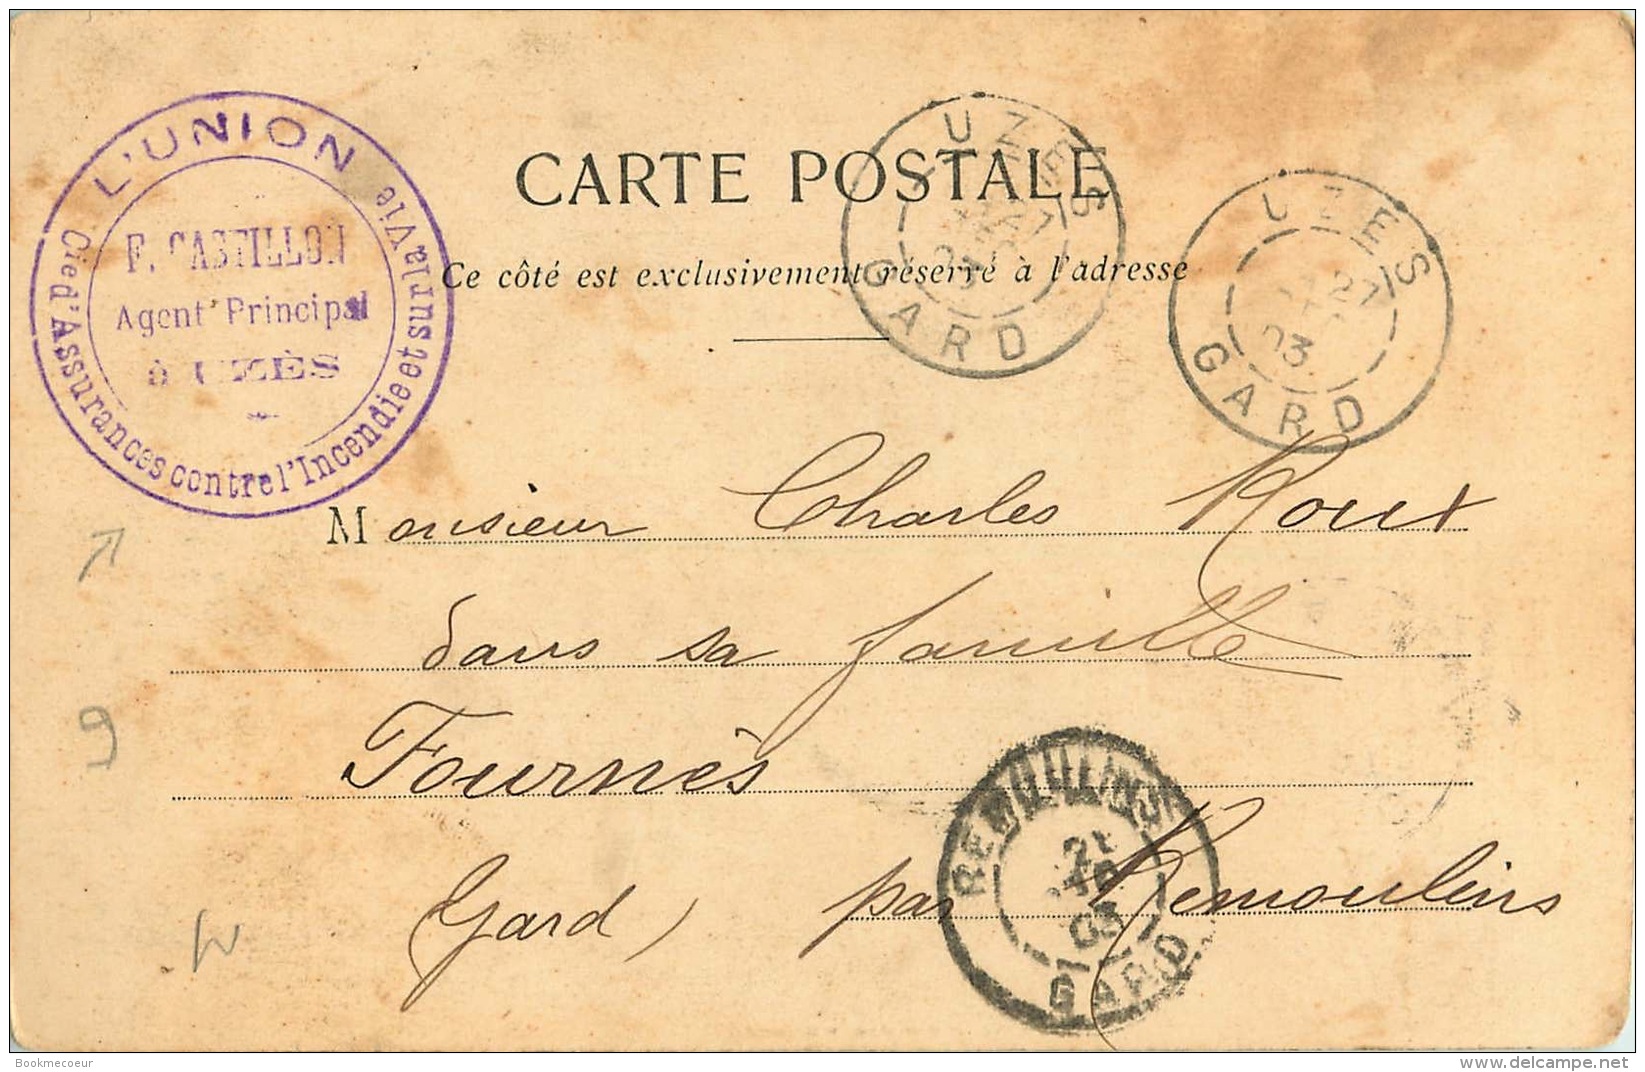 L'UNION
Cie d'Assurances contre l'Incendie et sur la Vie
F. CASTILLON
Agent Principal
à UZÈS
CARTE POSTALE
Ce côté est exclusivement réservé à l'adresse
UZES
27
03
GARD
UZES
27
03
GARD
Monsieur Charles Roux
dans sa famille
Fournès
Gard, par Remoulins
REMOULINS
03
GARD
9
Bookmecoeur
www.delcampe.net